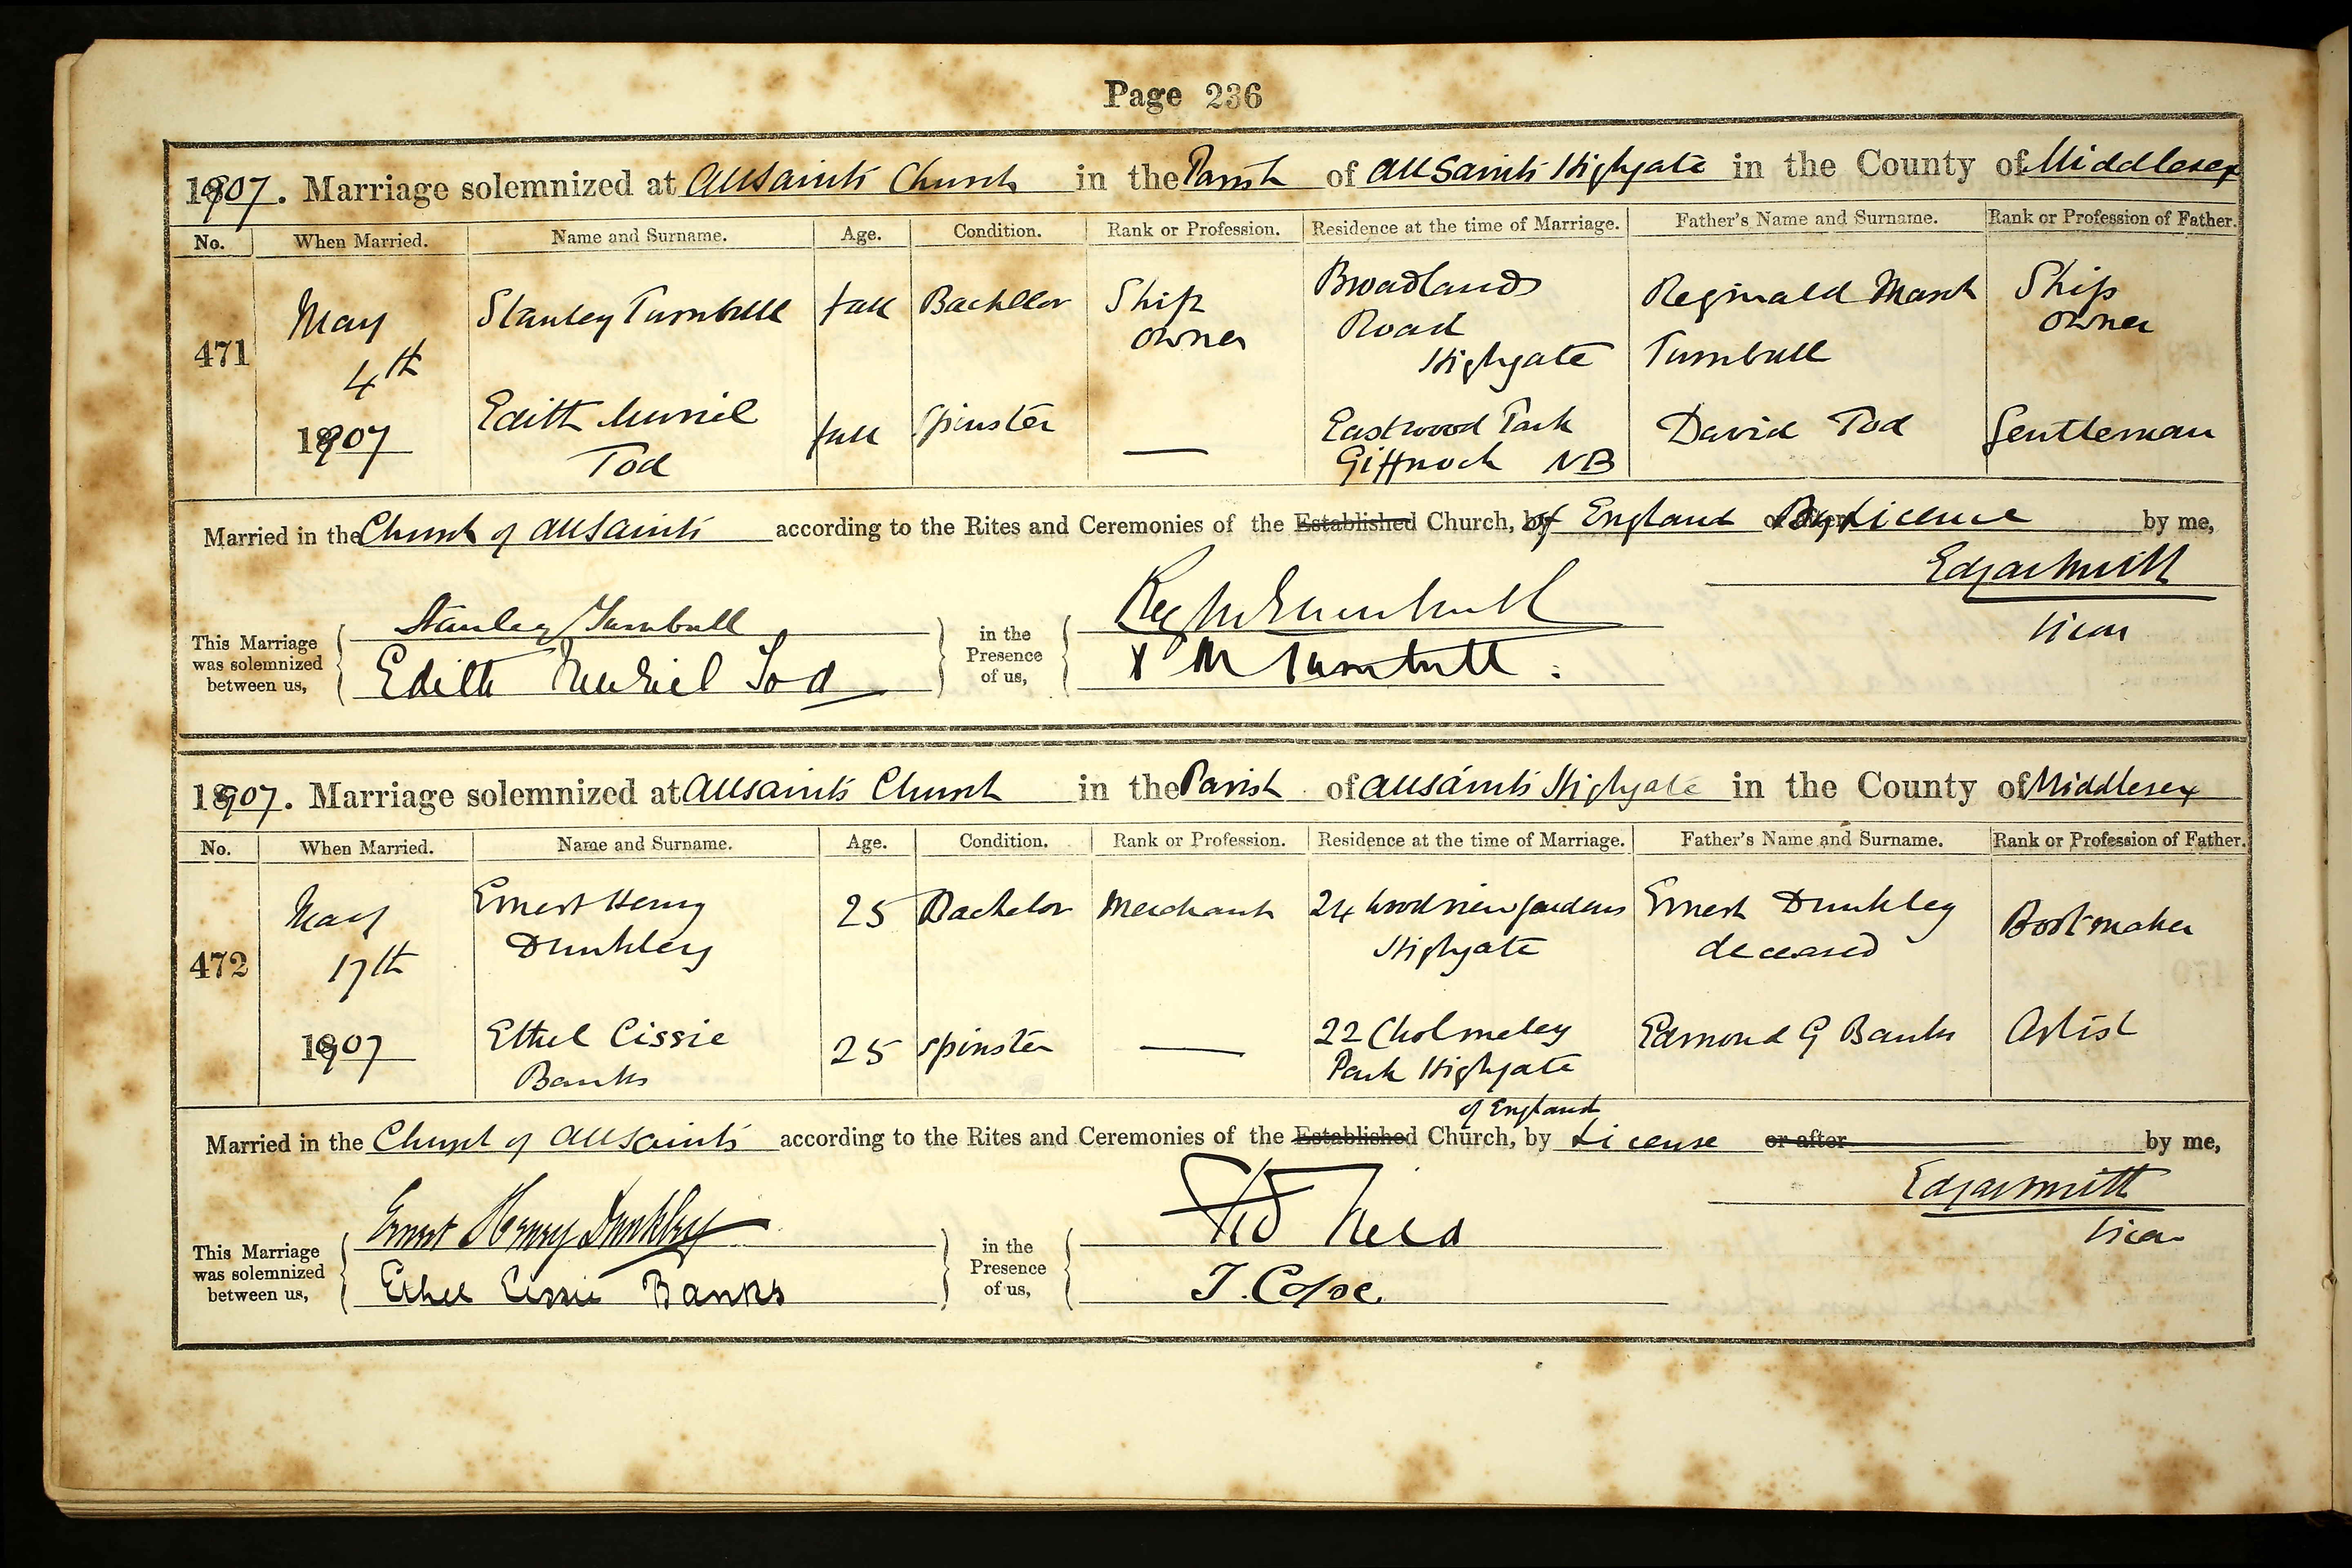 Page 236
1907. Marriage solemnized at All Saints Church in the Parish of All Saints Highgate in the County of Middlesex
No. When Married. Name and Surname. Age. Condition. Rank or Profession. Residence at the time of Marriage. Father's Name and Surname. Rank or Profession of Father.
471
May
4th
1907
Stanley Turnbull
full
Bachelor
Ship
owner
Broadlands
Road
Highgate
Reginald March
Turnbull
Ship
owner
Edith Muriel
Tod
full
Spinster
—
Eastwood Park
Giffnock NB
David Tod
Gentleman
Married in the Church of All Saints according to the Rites and Ceremonies of the Established Church, of England By Licence by me,
Edgar Smith
Vicar
This Marriage
was solemnized
between us,
Stanley Turnbull
Edith Muriel Tod
in the
Presence
of us,
Turnbull
M Turnbull
1907. Marriage solemnized at All Saints Church in the Parish of All Saints Highgate in the County of Middlesex
No. When Married. Name and Surname. Age. Condition. Rank or Profession. Residence at the time of Marriage. Father's Name and Surname. Rank or Profession of Father.
472
May
17th
1907
Ernest Henry
Dunkley
25
Bachelor
Merchant
24 Woodview Gardens
Highgate
Ernest Dunkley
deceased
Bootmaker
Ethel Cissie
Banks
25
Spinster
—
22 Cholmeley
Park Highgate
Edmond G Banks
Artist
of England
Married in the Church of All Saints according to the Rites and Ceremonies of the Established Church, by License or after by me,
Edgar Smith
Vicar
This Marriage
was solemnized
between us,
Ernest Henry Dunkley
Ethel Cissie Banks
in the
Presence
of us,